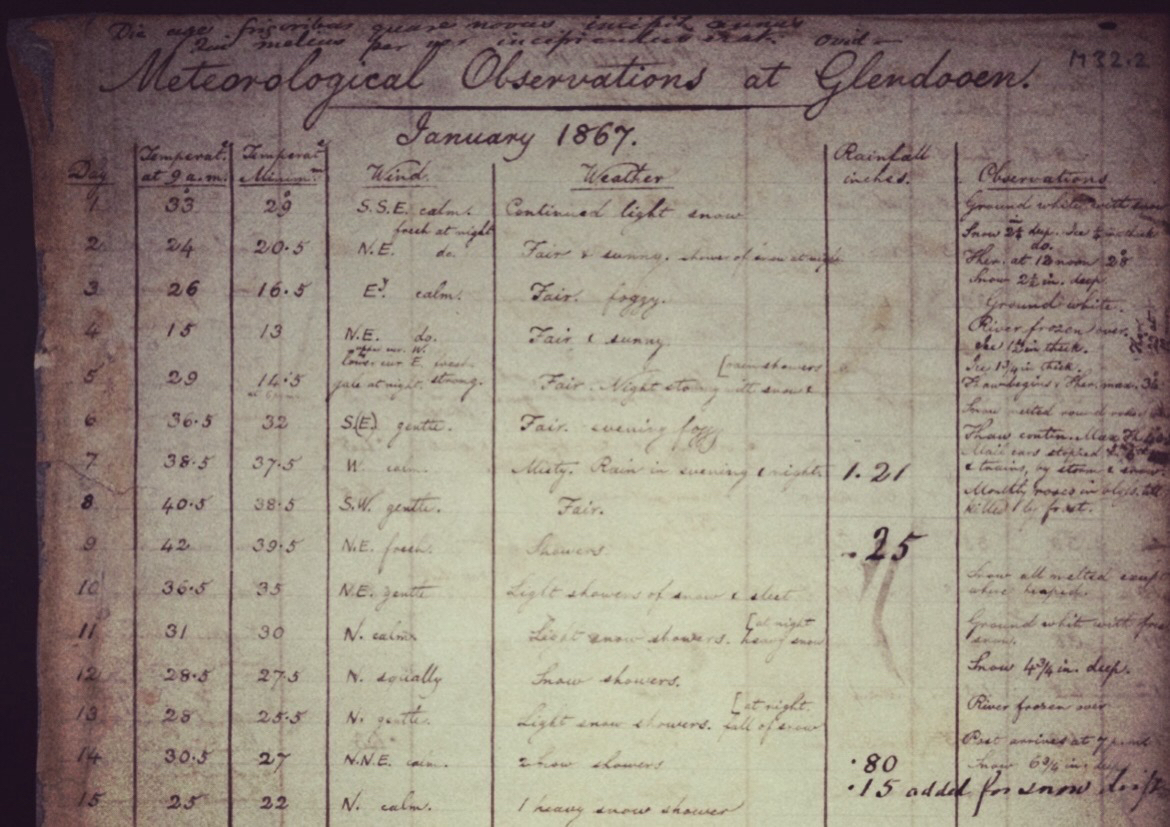 Die age frigoribus quare novus incipit annus
Qui melius per ver incipiendus erat. Ovid -
M 32.2
Meteorological Observations at Glendooen.
January 1867.
Day Temperat. at 9 a.m. Temperat. Minim. Wind. Weather Rainfall inches. Observations
1 33° 29° S.S.E. calm. Continued light snow Ground white with snow
fresh at night Snow 2½ deep. Ice thick
2 24 20.5 N.E. do. Fair & sunny. shower of snow at night do. Ther. at 12 noon 28°
3 26 16.5 Ey. calm. Fair. foggy. Snow 2½ in. deep
Ground white.
4 15 13 N.E. do. Fair & sunny River frozen over.
Ice in thick.
upper cur. W.
lower cur E. west. [rain showers Ice 1¾ in thick.
5 29 14.5 gale at night. strong. Fair. Night stormy with snow & Thaw begins. Ther. max. 36
6 36.5 32 S.(E). gentle. Fair. evening foggy Snow melted round
Thaw contin. Max
7 38.5 37.5 W. calm. Misty. Rain in evening & night. 1.21 Mail cars stopped
& trains, by storm & snow.
8 40.5 38.5 S.W. gentle. Fair. Monthly roses in till
killed by frost.
9 42 39.5 N.E. fresh. Showers .25
10 36.5 35 N.E. gentle Light showers of snow & sleet Snow all melted except
where heaped.
11 31 30 N. calm. Light snow showers. [at night heavy snow Ground white with
snow.
12 28.5 27.5 N. squally Snow showers. Snow 4¾ in. deep.
13 28 25.5 N. gentle. Light snow showers. [at night. fall of snow River frozen over
Post arrives at 7
14 30.5 27 N.N.E. calm. Snow showers .80 Snow 6¾ in. deep
.15 added for snow drift
15 25 22 N. calm. 1 heavy snow shower